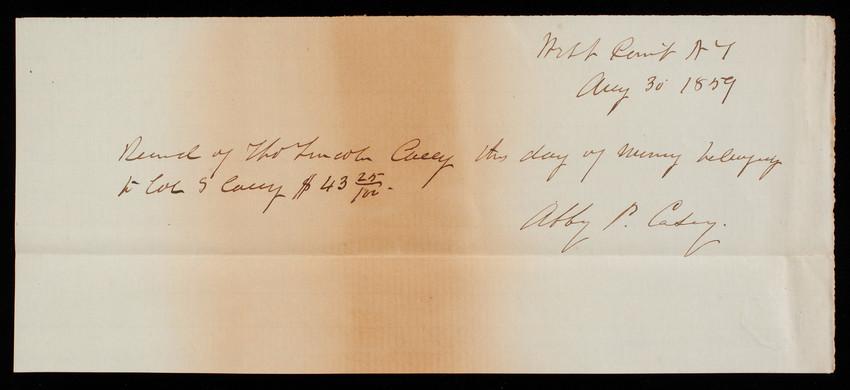 West Point N Y
Aug 30 1859
Received of Tho Lincoln Casey this day of money belonging
to Col S Casey $ 43 25/100.
Abby P. Casey.